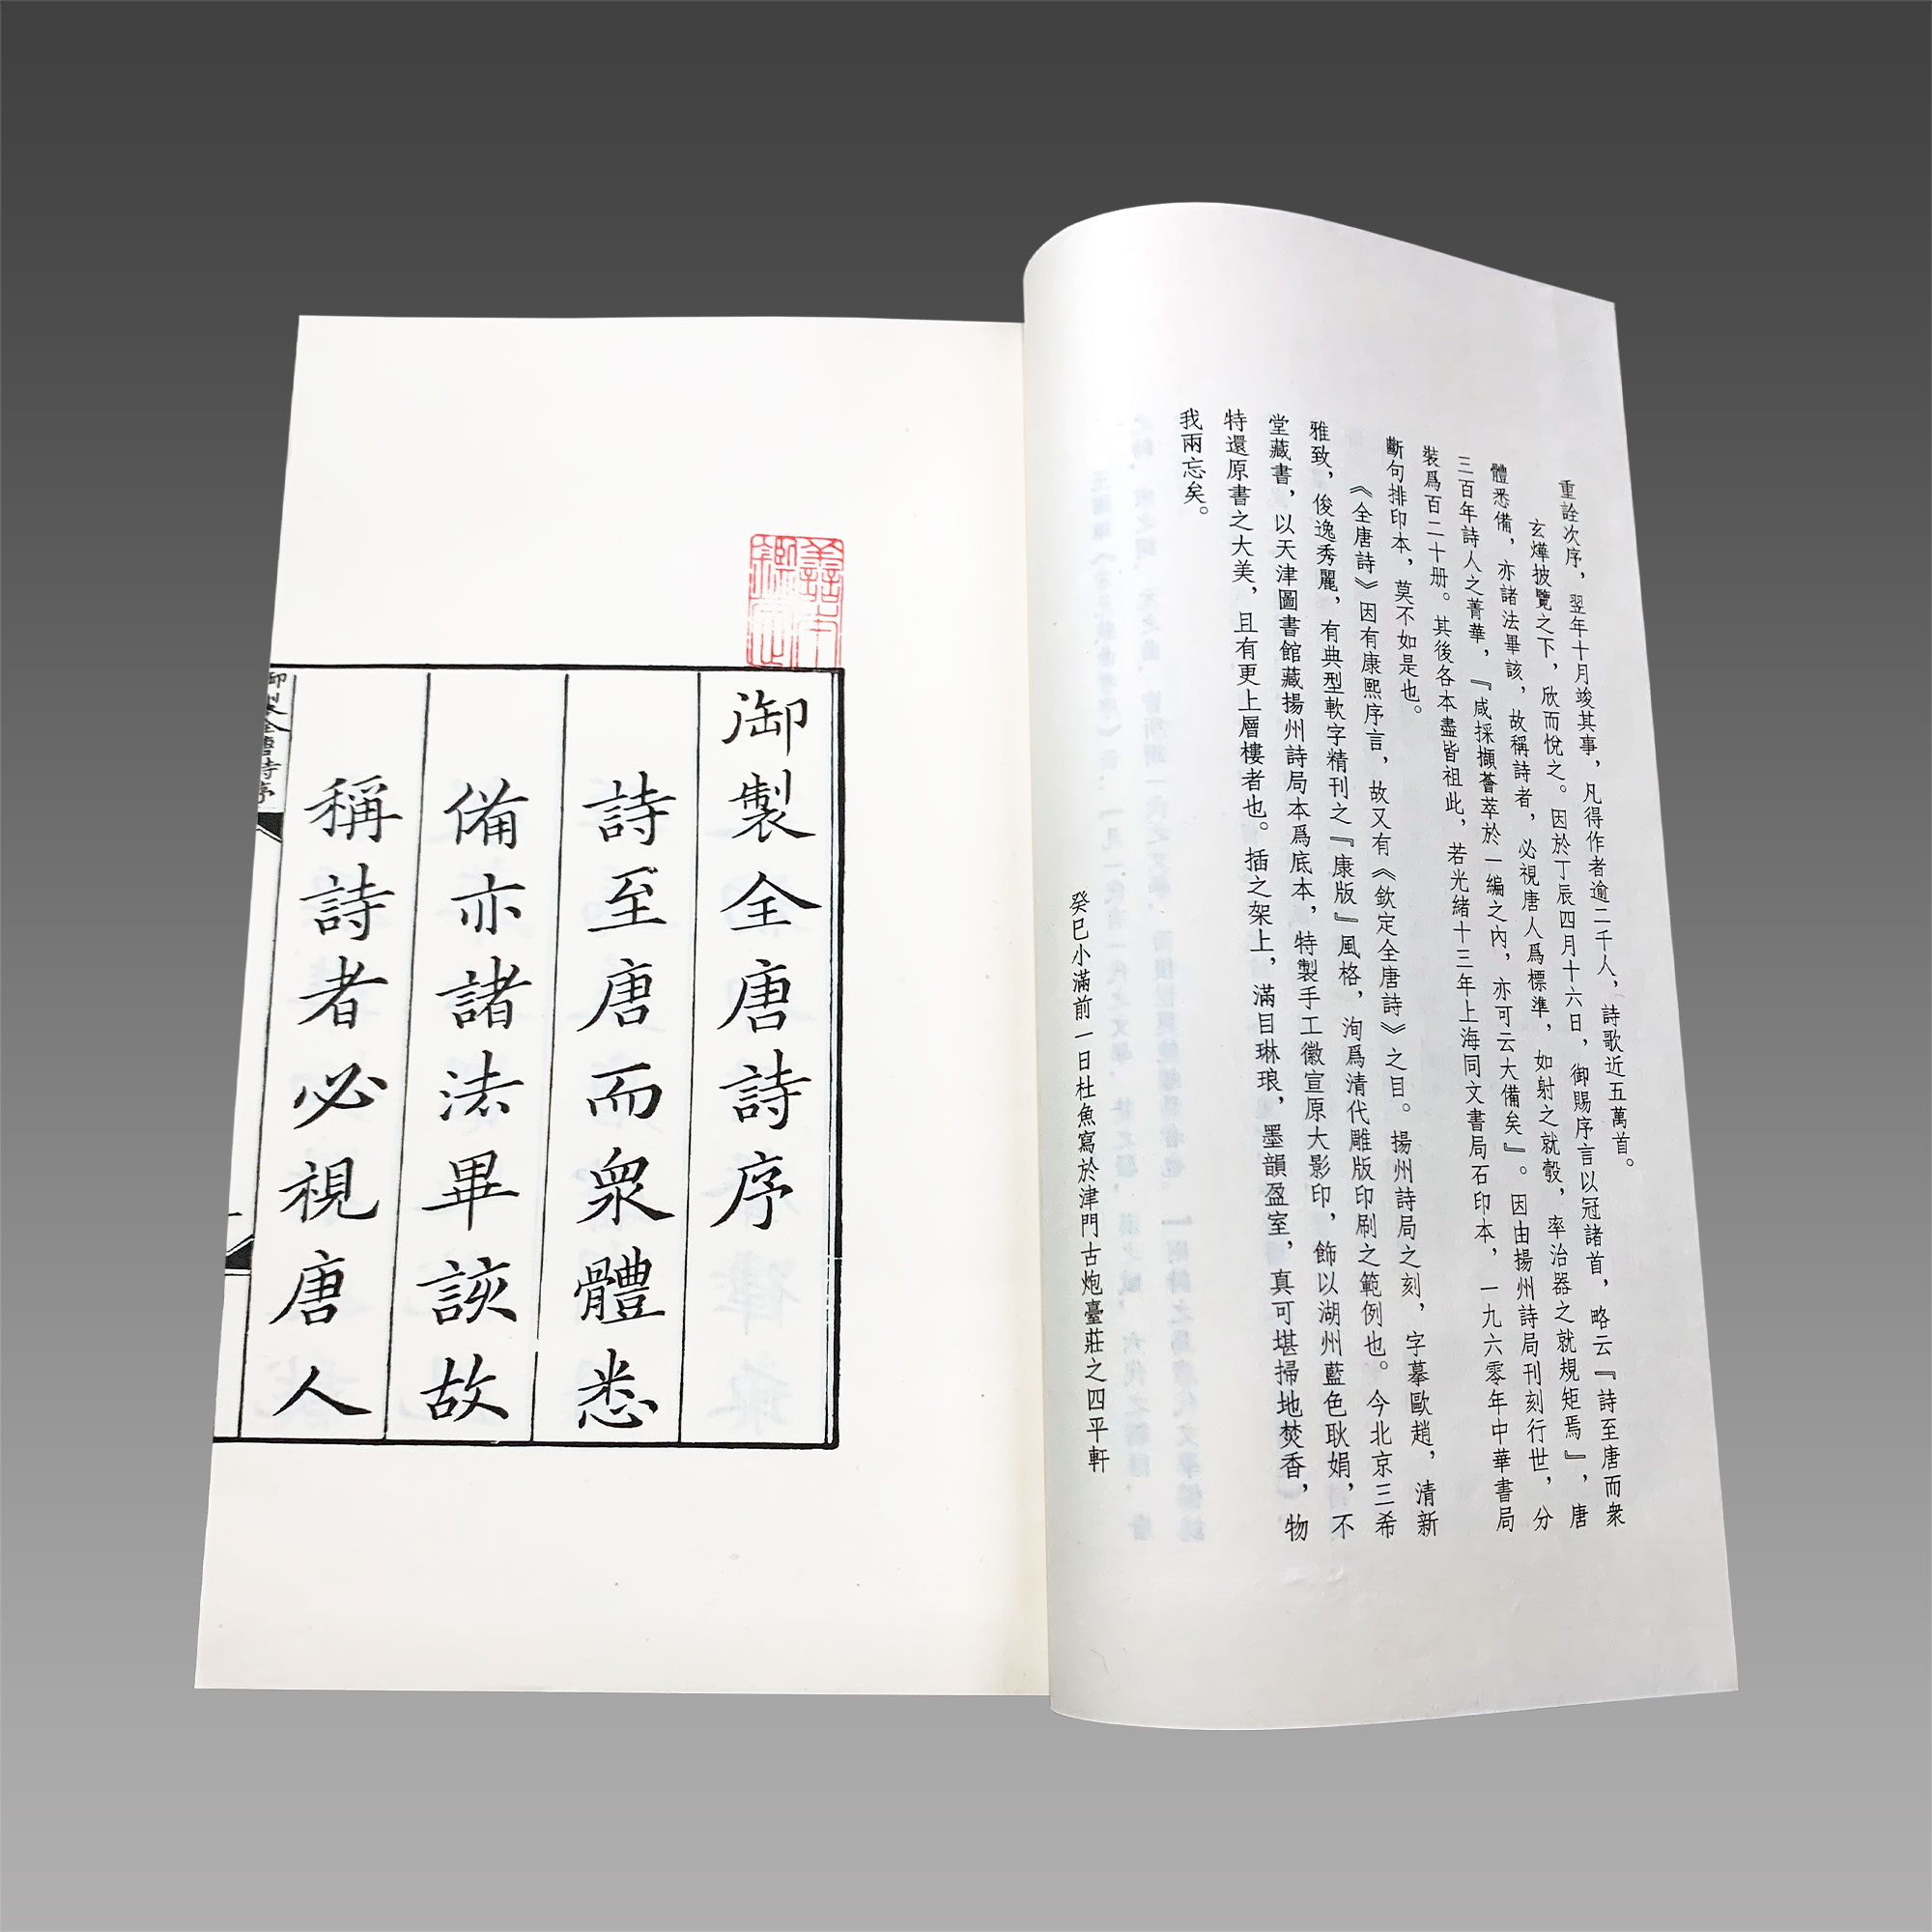 重詮次序，翌年十月竣其事，凡得作者逾二千人，詩歌近五萬首。
玄燁披覽之下，欣而悅之。因於丁辰四月十六日，御賜序言以冠諸首，略云『詩至唐而衆
體悉備，亦諸法畢該，故稱詩者，必視唐人爲標準，如射之就彀，率治器之就規矩焉』，唐
三百年詩人之菁華，『咸採擷薈萃於一編之內，亦可云大備矣』。因由揚州詩局刊刻行世，分
裝爲百二十册。其後各本盡皆祖此，若光緒十三年上海同文書局石印本，一九六零年中華書局
斷句排印本，莫不如是也。
《全唐詩》因有康熙序言，故又有《欽定全唐詩》之目。揚州詩局之刻，字摹歐趙，清新
雅致，俊逸秀麗，有典型軟字精刊之『康版』風格，洵爲清代雕版印刷之範例也。今北京三希
堂藏書，以天津圖書館藏揚州詩局本爲底本，特製手工徽宣原大影印，飾以湖州藍色耿娟，不
特還原書之大美，且有更上層樓者也。插之架上，滿目琳琅，墨韻盈室，真可堪掃地焚香，物
我兩忘矣。
癸巳小滿前一日杜魚寫於津門古炮臺莊之四平軒
御製全唐詩序
詩至唐而衆體悉
備亦諸法畢該故
稱詩者必視唐人
御製全唐詩序
一